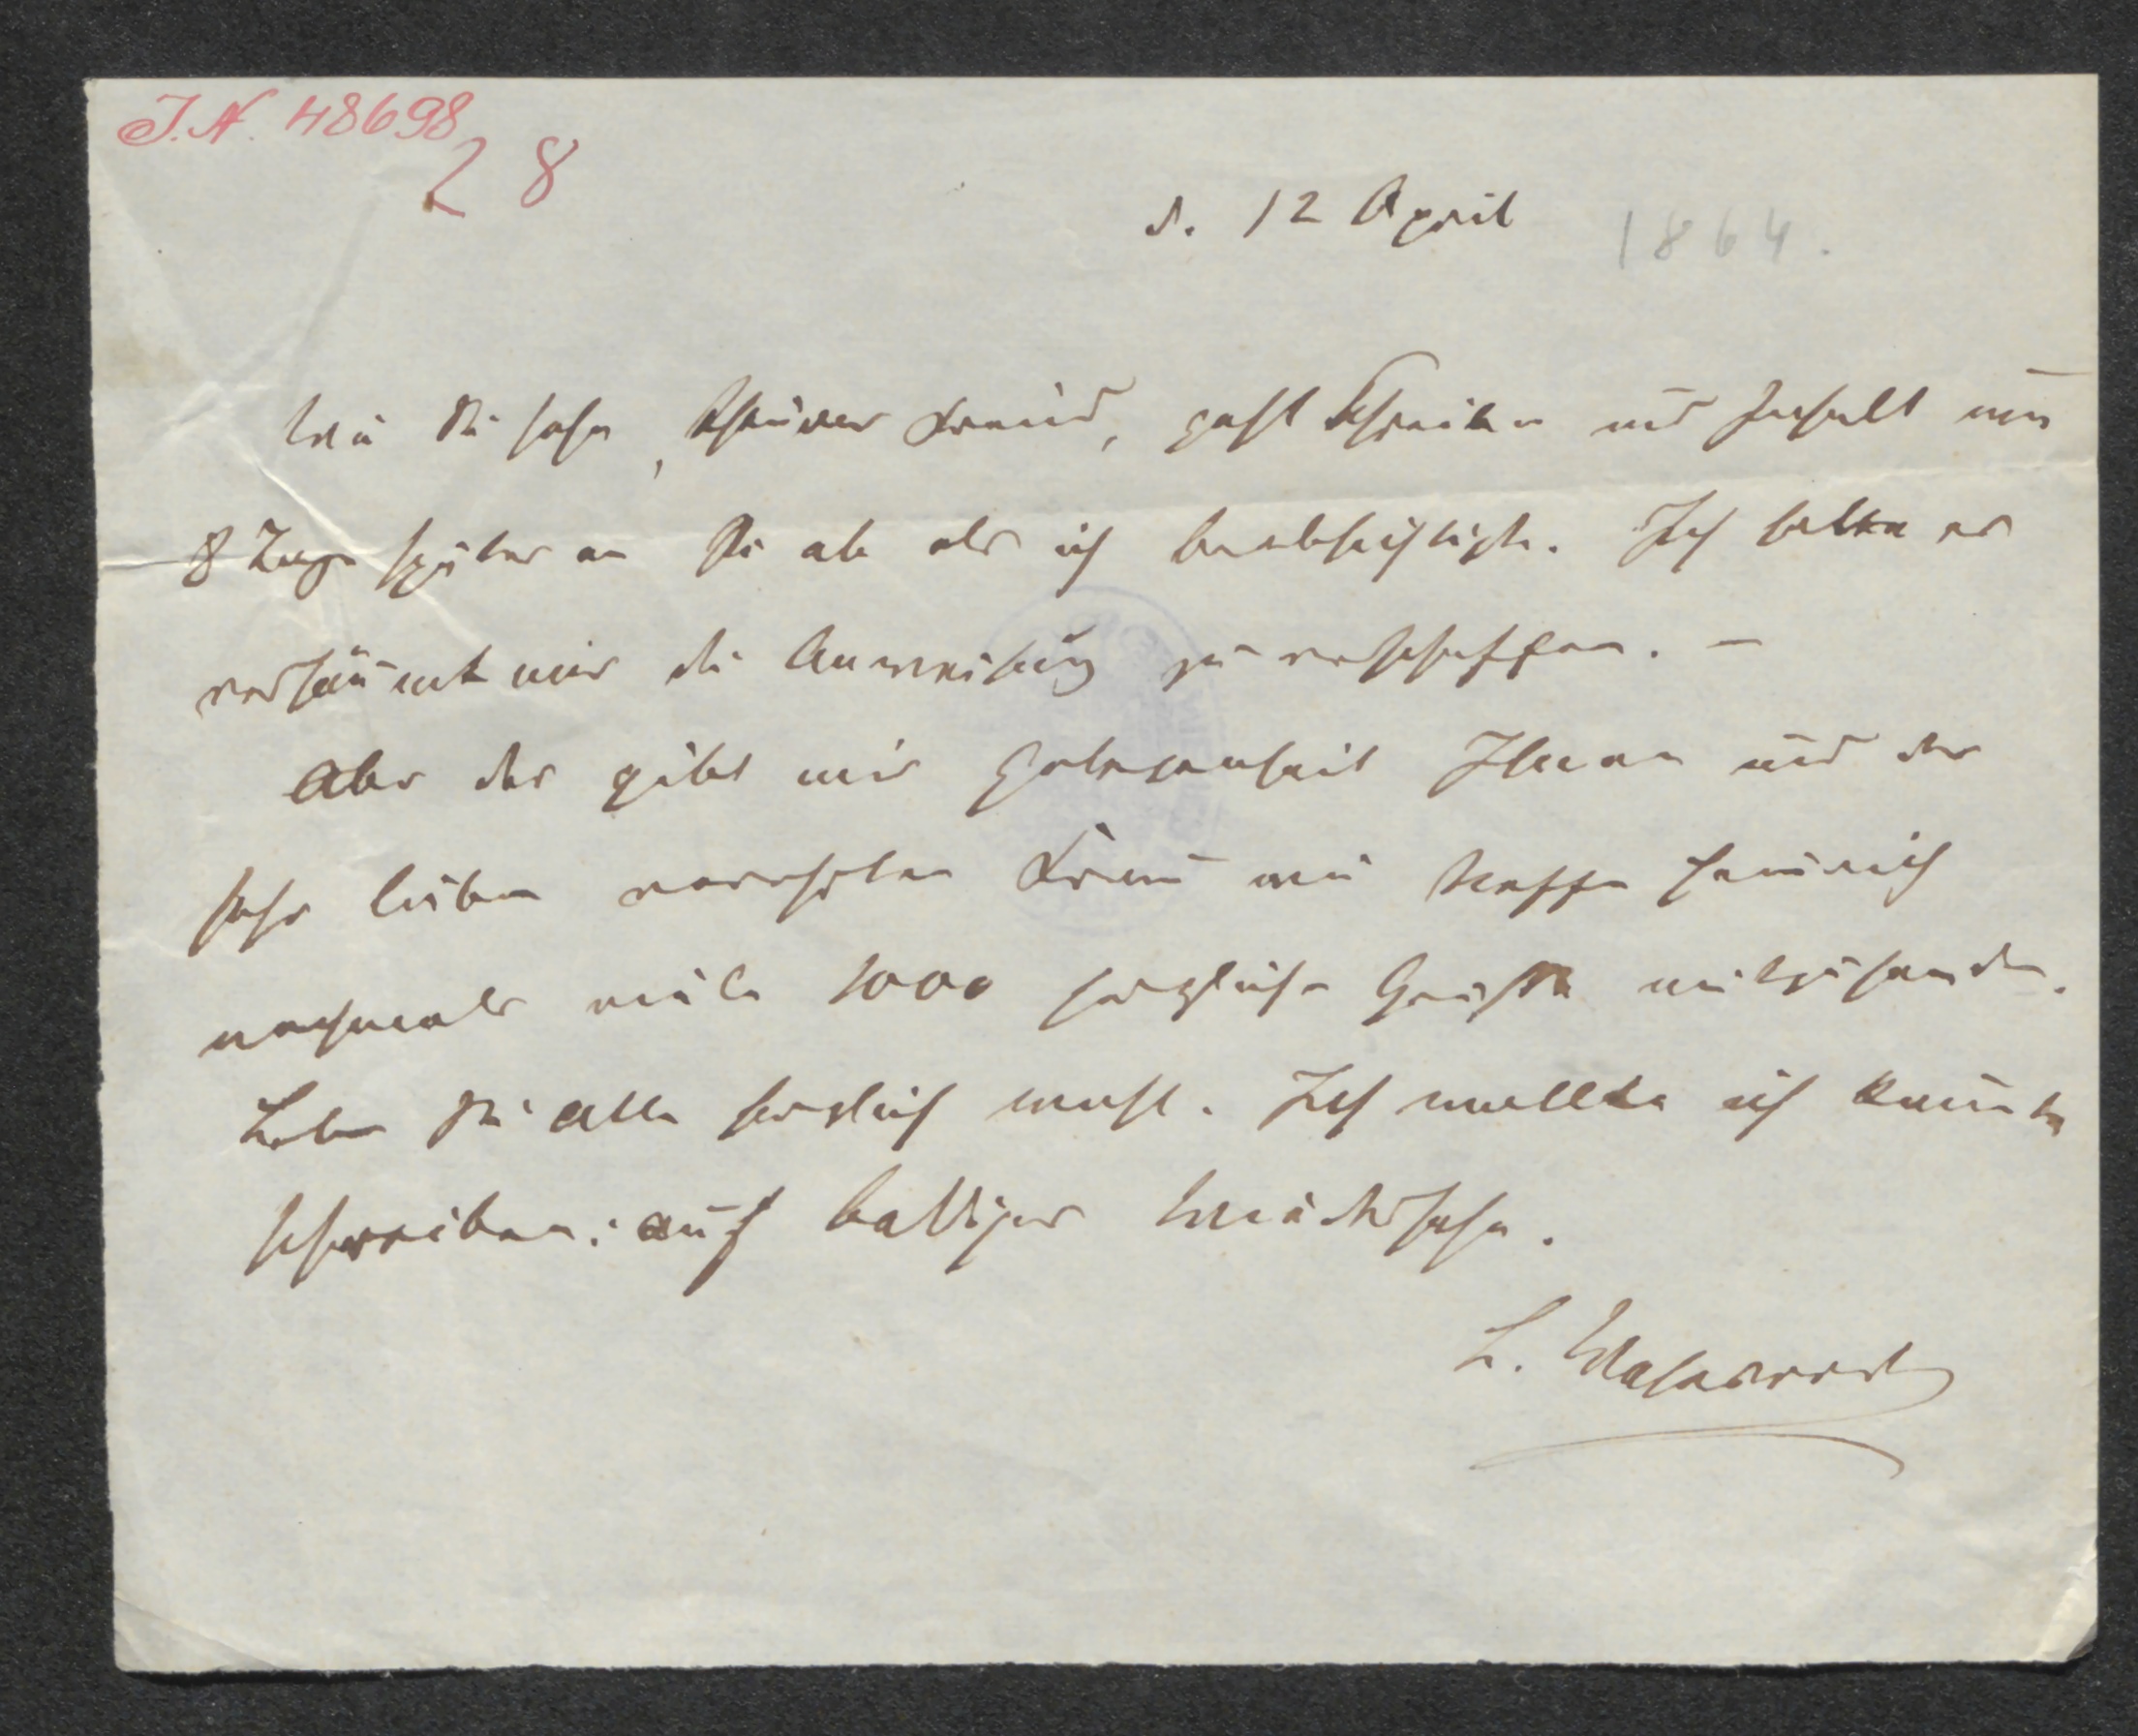 J.N. 48698
28
d. 12 April 1864.
Wie Sie sehn, theurer Freund, geht Schreiben und Inhalt um
8 Tage später an Sie ab als ich beabsichtigte. Ich hatte es
versäumt mir die Anweisung zu verschaffen. –
Aber das gibt mir Gelegenheit Ihnen und der
sehr lieben verehrten Frau wie Neffe Heinrich
nochmals viele 1000 herzliche Grüße mitzusenden.
Leben Sie alle herzlich wohl. Ich wollte ich könnte
schreiben: auf baldiges Wiedersehn.
L.